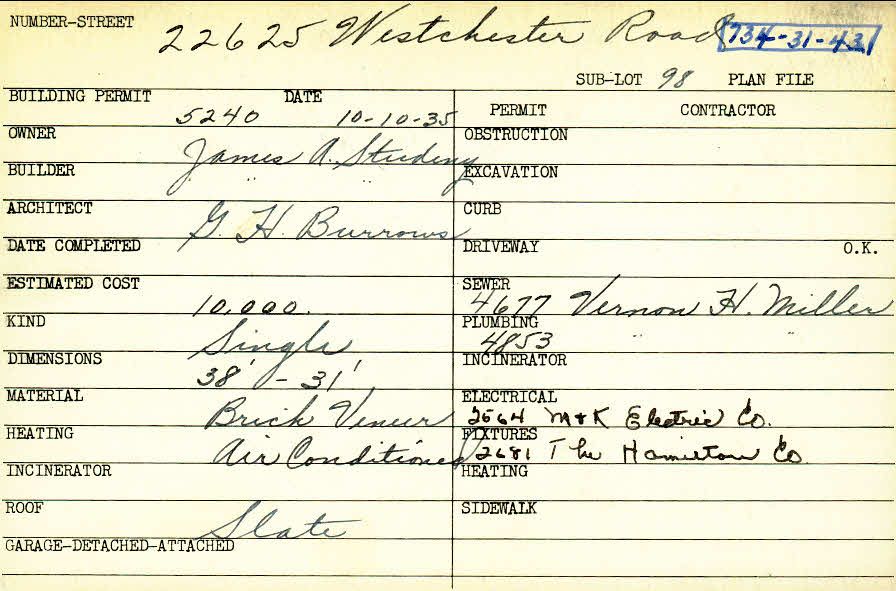 NUMBER-STREET 22625 Westchester Road 734-31-43
SUB-LOT 98 PLAN FILE
BUILDING PERMIT 5240 DATE 10-10-35
PERMIT CONTRACTOR
OWNER James A. Studeny
OBSTRUCTION
BUILDER " "
EXCAVATION
ARCHITECT G. H. Burrows
CURB
DATE COMPLETED
DRIVEWAY O.K.
ESTIMATED COST 10,000.
SEWER 4677 Vernon H. Miller
KIND Single
PLUMBING 4853 " "
DIMENSIONS 38' - 31'
INCINERATOR
MATERIAL Brick Veneer
ELECTRICAL 2564 M & K Electric Co.
HEATING Air Conditioned
FIXTURES 2681 The Hamilton Co.
INCINERATOR
HEATING
ROOF Slate
SIDEWALK
GARAGE-DETACHED-ATTACHED